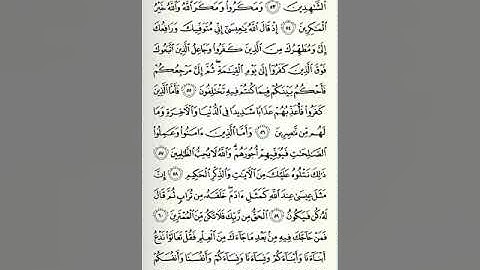 ٱلشَّٰهِدِينَ ٥٣ وَمَكَرُوا۟ وَمَكَرَ ٱللَّهُ وَٱللَّهُ خَيْرُ
ٱلْمَٰكِرِينَ ٥٤ إِذْ قَالَ ٱللَّهُ يَٰعِيسَىٰٓ إِنِّى مُتَوَفِّيكَ وَرَافِعُكَ
إِلَىَّ وَمُطَهِّرُكَ مِنَ ٱلَّذِينَ كَفَرُوا۟ وَجَاعِلُ ٱلَّذِينَ ٱتَّبَعُوكَ
فَوْقَ ٱلَّذِينَ كَفَرُوٓا۟ إِلَىٰ يَوْمِ ٱلْقِيَٰمَةِ ۖ ثُمَّ إِلَىَّ مَرْجِعُكُمْ
فَأَحْكُمُ بَيْنَكُمْ فِيمَا كُنتُمْ فِيهِ تَخْتَلِفُونَ ٥٥ فَأَمَّا ٱلَّذِينَ
كَفَرُوا۟ فَأُعَذِّبُهُمْ عَذَابًا شَدِيدًا فِى ٱلدُّنْيَا وَٱلْءَاخِرَةِ وَمَا
لَهُم مِّن نَّٰصِرِينَ ٥٦ وَأَمَّا ٱلَّذِينَ ءَامَنُوا۟ وَعَمِلُوا۟
ٱلصَّٰلِحَٰتِ فَيُوَفِّيهِمْ أُجُورَهُمْ ۗ وَٱللَّهُ لَا يُحِبُّ ٱلظَّٰلِمِينَ ٥٧
ذَٰلِكَ نَتْلُوهُ عَلَيْكَ مِنَ ٱلْءَايَٰتِ وَٱلذِّكْرِ ٱلْحَكِيمِ ٥٨ إِنَّ
مَثَلَ عِيسَىٰ عِندَ ٱللَّهِ كَمَثَلِ ءَادَمَ ۖ خَلَقَهُۥ مِن تُرَابٍ ثُمَّ قَالَ
لَهُۥ كُن فَيَكُونُ ٥٩ ٱلْحَقُّ مِن رَّبِّكَ فَلَا تَكُن مِّنَ ٱلْمُمْتَرِينَ ٦٠
فَمَنْ حَآجَّكَ فِيهِ مِنۢ بَعْدِ مَا جَآءَكَ مِنَ ٱلْعِلْمِ فَقُلْ تَعَالَوْا۟ نَدْعُ
أَبْنَآءَنَا وَأَبْنَآءَكُمْ وَنِسَآءَنَا وَنِسَآءَكُمْ وَأَنفُسَنَا وَأَنفُسَكُمْ